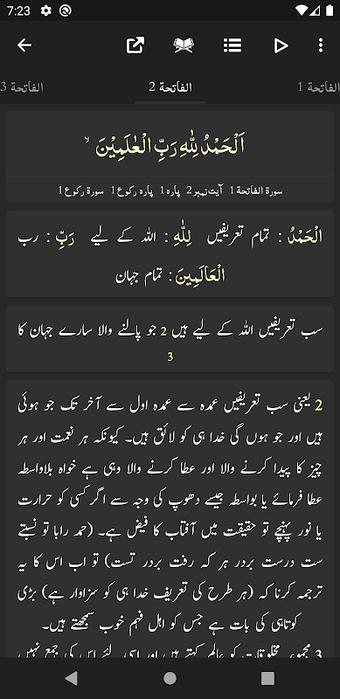 7:23
الفاتحة 1
الفاتحة 2
الفاتحة 3
اَلْحَمْدُ لِلّٰهِ رَبِّ الْعٰلَمِيْنَ ۙ
سورۃ الفاتحة 1 آیت نمبر 2 پارہ 1 پارہ رکوع 1 سورۃ رکوع 1
الْحَمْدُ : تمام تعریفیں لِلّٰهِ : اللہ کے لیے رَبِّ : رب
الْعَالَمِينَ : تمام جہان
سب تعریفیں اللہ کے لیے ہیں 2 جو پالنے والا سارے جہان کا
3
2 یعنی سب تعریفیں عمدہ سے عمدہ اول سے آخر تک جو ہوئی
ہیں اور جو ہوں گی خدا ہی کو لائق ہیں۔ کیونکہ ہر نعمت اور ہر
چیز کا پیدا کرنے والا اور عطا کرنے والا وہی ہے خواہ بلاواسطہ
عطا فرمائے یا بالواسطہ جیسے دھوپ کی وجہ سے اگر کسی کو حرارت
یا نور پہنچے تو حقیقت میں آفتاب کا فیض ہے۔ (حمد رابا تو نسبتے
ست درست بردر ہر کہ رفت بردر تست) تو اب اس کا یہ
ترجمہ کرنا کہ (ہر طرح کی تعریف خدا ہی کو سزاوار ہے) بڑی
کوتاہی کی بات ہے جس کو اہل فہم خوب سمجھتے ہیں۔
3 مجموعہ مخلوقات کو عالم کہتے ہیں اور اسی لئے اس کی جمع نہیں